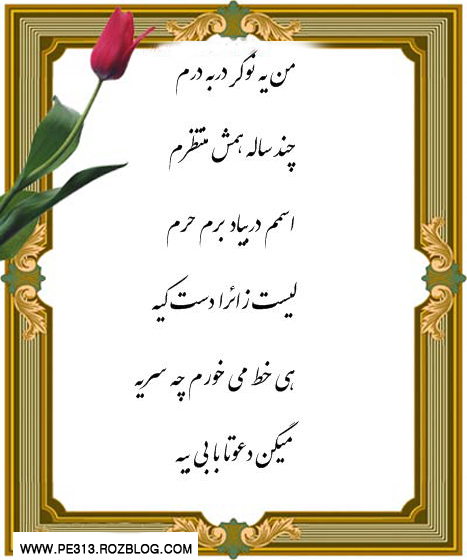 من یه نوکر دربه درم
چند ساله همش منتظرم
اسمم دربیاد برم حرم
لیست زائرا دست کیه
هی خط می خورم چه سریه
میگن دعوتا با بی بیه
WWW.PE313.ROZBLOG.COM